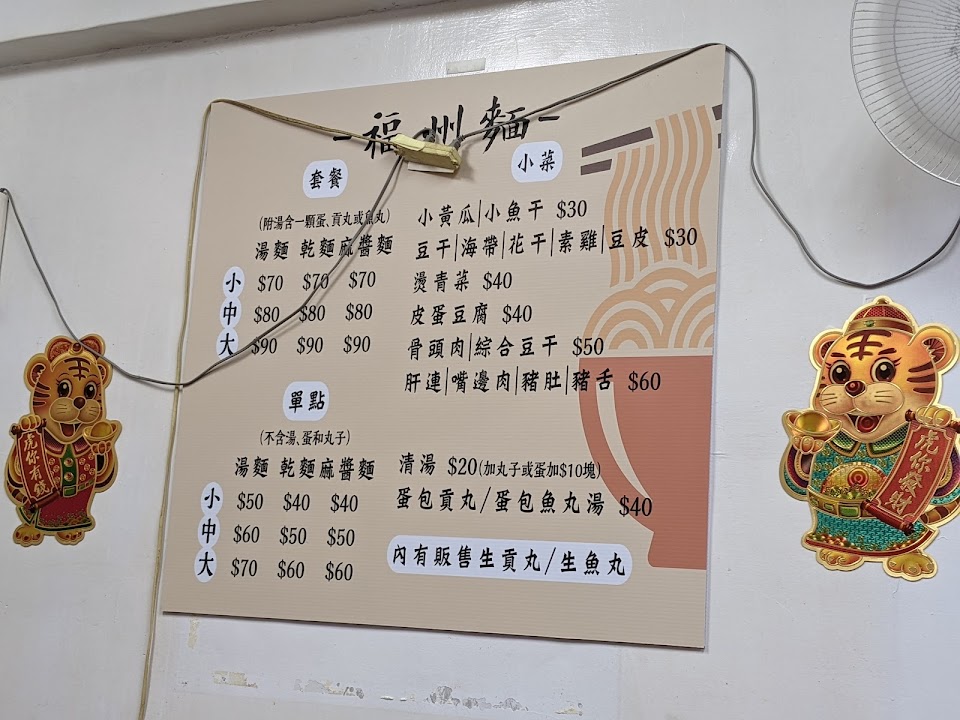 -福州麵-
套餐
(附湯含一顆蛋、貢丸或魚丸)
湯麵 乾麵 麻醬麵
小 $70 $70 $70
中 $80 $80 $80
大 $90 $90 $90
單點
(不含湯、蛋和丸子)
湯麵 乾麵 麻醬麵
小 $50 $40 $40
中 $60 $50 $50
大 $70 $60 $60
小菜
小黃瓜|小魚干 $30
豆干|海帶|花干|素雞|豆皮 $30
燙青菜 $40
皮蛋豆腐 $40
骨頭肉|綜合豆干 $50
肝連|嘴邊肉|豬肚|豬舌 $60
清湯 $20(加丸子或蛋加$10塊)
蛋包貢丸/蛋包魚丸湯 $40
內有販售生貢丸/生魚丸
虎你有錢
虎你發財